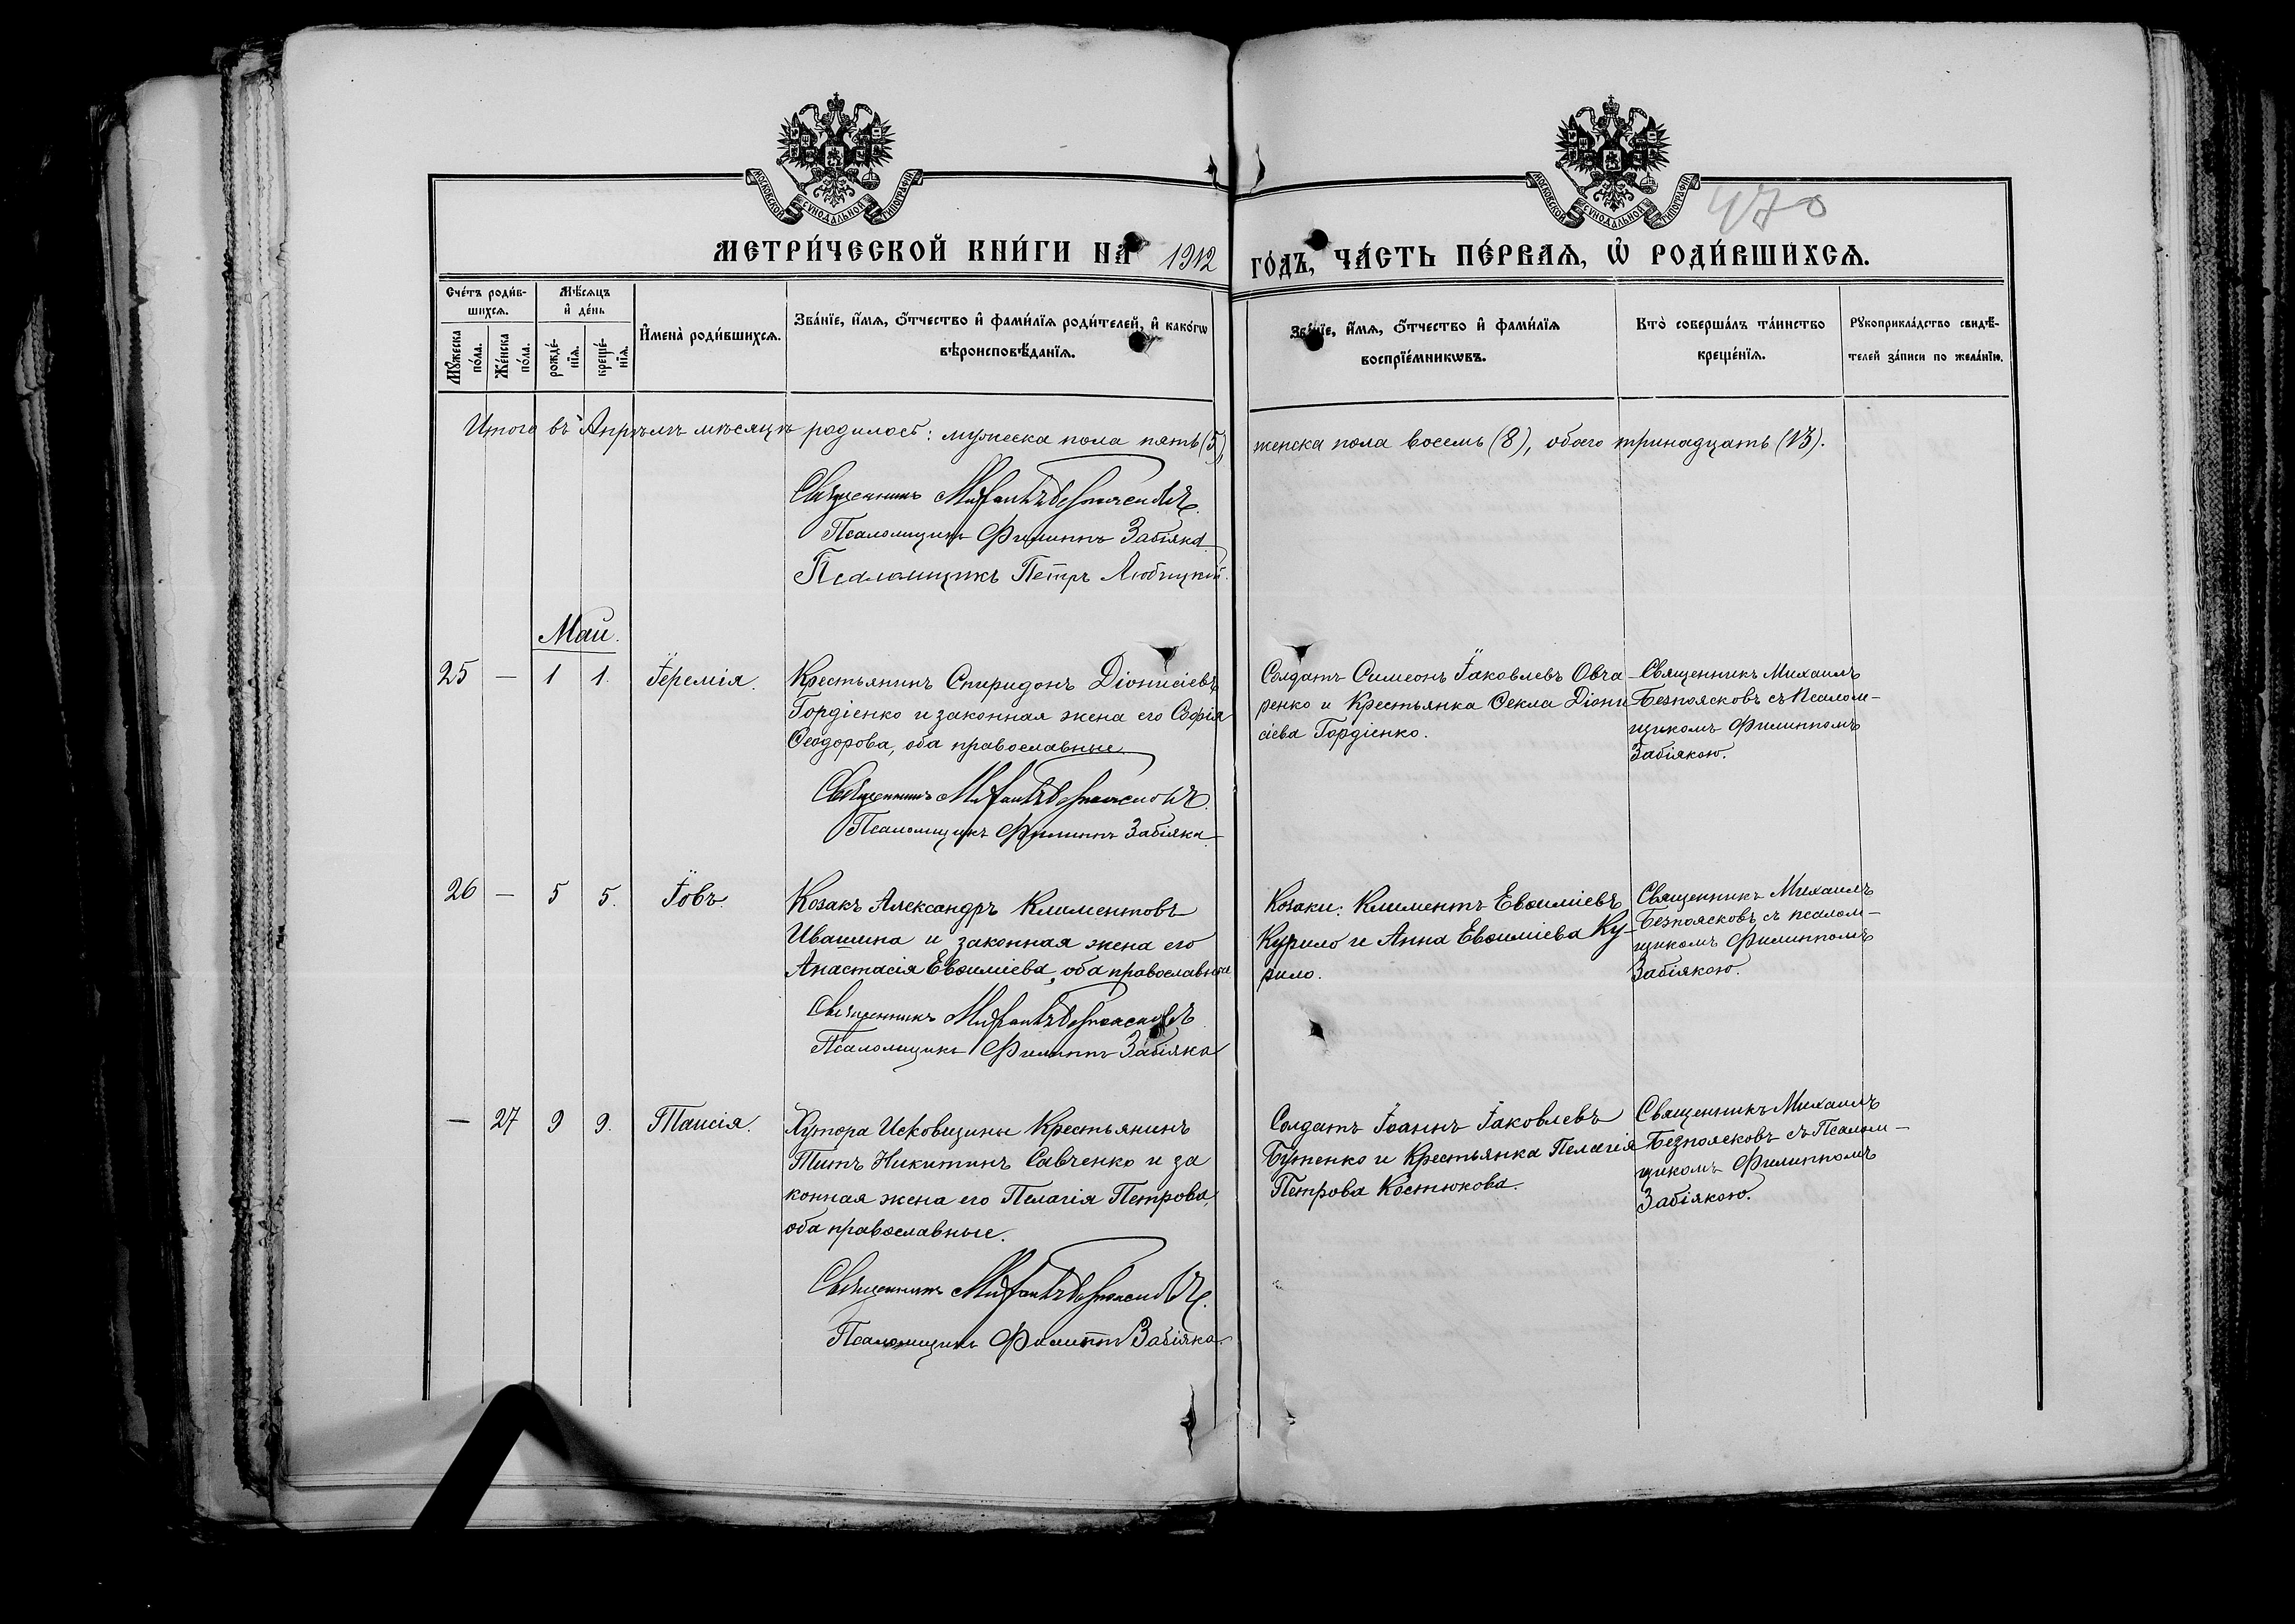 МОСКОВСКОЙ СѴНОДАЛЬНОЙ ТИПОГРАФІИ
МОСКОВСКОЙ СѴНОДАЛЬНОЙ ТИПОГРАФІИ
470
МЕТРИ́ЧЕСКОЙ КНИ́ГИ НА 1912 ГО́ДЪ, ЧА́СТЬ ПЕ́РВАѦ, Ѡ҆ РОДИ́ВШИХСѦ.
Сче́тъ роди́в-
шихсѧ.
Мꙋ́жеска по́ла.
Же́нска по́ла.
Мѣ́сѧцъ
и҆ де́нь
рожде́-нїѧ.
креще́-нїѧ.
И҆мена̀ роди́вшихсѧ.
Зва́нїе, и҆́мѧ, ѻ҆́тчество и҆ фами́лїѧ роди́телей, и҆ како́гѡ
вѣроисповѣ́данїѧ.
Зва́нїе, и҆́мѧ, ѻ҆́тчество и҆ фами́лїѧ
воспрїе́мникѡвъ.
Кто̀ соверша́лъ та́инство
креще́нїѧ.
Рꙋкоприкла́дство свидѣ́-
телей за́писи по жела́нїю.
Итого въ Апрѣлѣ мѣсяцѣ родилось: мужеска пола пять (5), женска пола восемь (8), обоего тринадцать (13).
Священникъ Михаилъ Безпоясковъ.
Псаломщикъ Филиппъ Забіяка
Псаломщикъ Петръ Любицкій.
Май.
25 — 1 1. Іеремія.
Крестьянинъ Спиридонъ Діонисіевъ
Гордіенко и законная жена его Софія
Ѳеодорова, оба православные.
Священникъ Михаилъ Безпоясковъ.
Псаломщикъ Филиппъ Забіяка.
Солдатъ Симеонъ Іаковлевъ Овча-
ренко и Крестьянка Ѳекла Діони
сіева Гордіенко.
Священникъ Михаилъ
Безпоясковъ съ Псалом-
щикомъ Филиппомъ
Забіякою.
26 — 5 5. Іовъ.
Козакъ Александръ Климентовъ
Ивашина и законная жена его
Анастасія Евѳиміева, оба православные
Священникъ Михаилъ Безпоясковъ
Псаломщикъ Филиппъ Забіяка
Козаки: Климентъ Евѳиміевъ
Курило и Анна Евѳиміева Ку-
рило.
Священникъ Михаилъ
Безпоясковъ съ псалом-
щикомъ Филиппомъ
Забіякою.
— 27 9 9. Таисія.
Хутора Исковщины Крестьянинъ
Титъ Никитинъ Савченко и за
конная жена его Пелагія Петрова,
оба православные.
Священникъ Михаилъ Безпоясковъ.
Псаломщикъ Филиппъ Забіяка.
Солдатъ Іоаннъ Іаковлевъ
Бутенко и Крестьянка Пелагія
Петрова Костюкова.
Священникъ Михаилъ
Безпоясковъ съ Псалом-
щикомъ Филиппомъ
Забіякою.